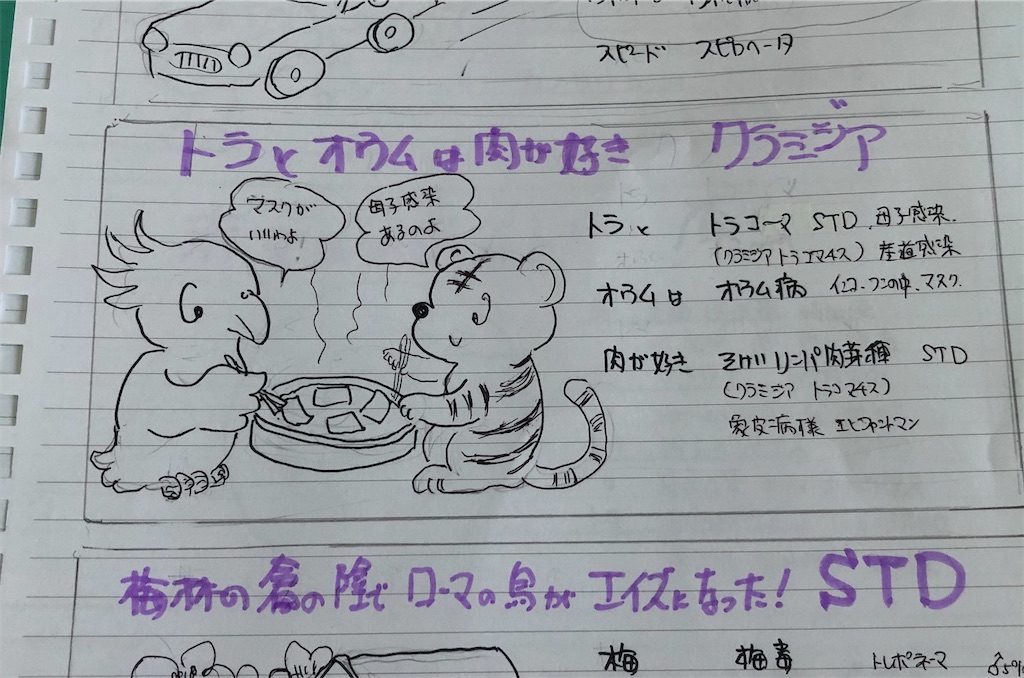 スピード スピロヘータ
トラと オウムは肉が好き クラミジア
マスクが
いいわよ
母子感染
あるのよ
トラと トラコーマ STD.母子感染.
(クラミジアトラコマチス) 産道感染
オウムは オウム病 インコ・フンの中.マスク.
肉が好き そけいリンパ肉芽種 STD
(クラミジア トラコマチス)
象皮病様 エレファントマン
梅林の倉の陰で ローマの鳥が エイズになった! STD
梅 梅毒 トレポネーマ